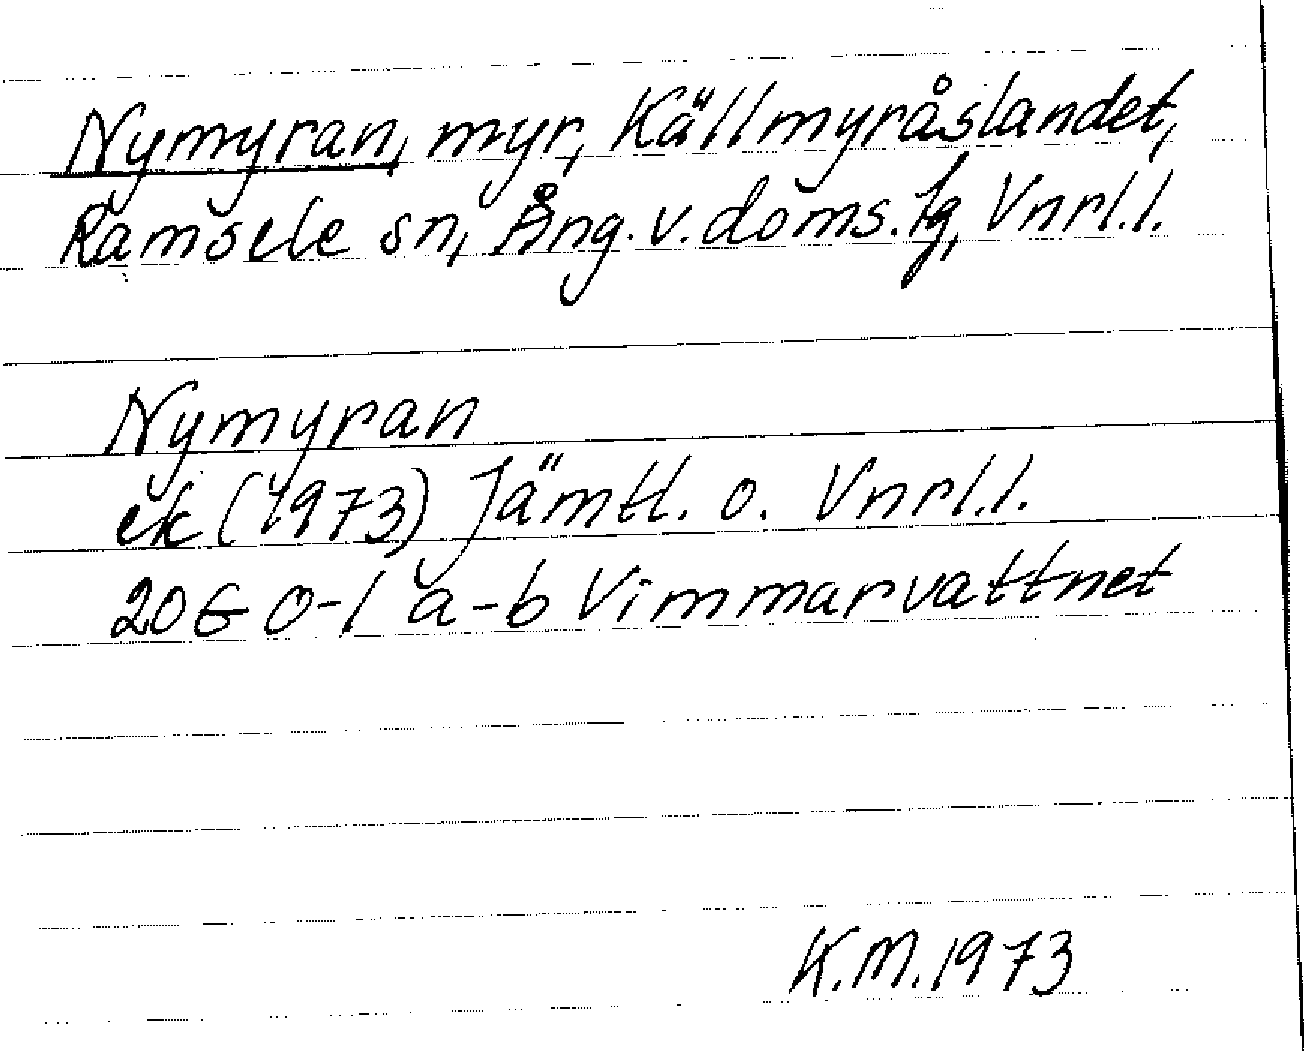 Nymyran, myr, Källmyråslandet,
Ramsele sn, Ång. v. doms. tg, Vnrl. l.
Nymyran
ek (1973) Jämtl. o. Vnrl. l.
20G 0-1 a-b Vimmarvattnet
K.M. 1973